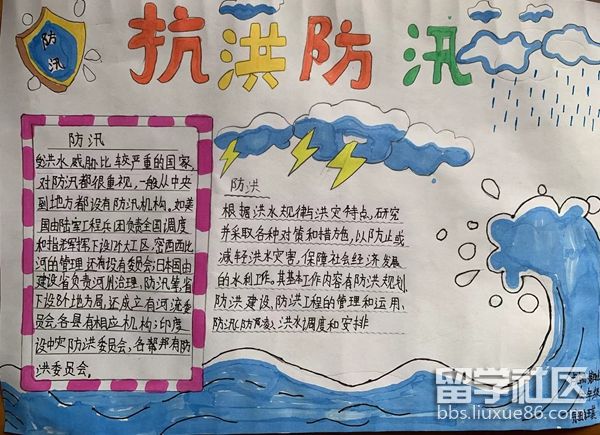 抗洪防汛
防汛
防汛
受洪水威胁比较严重的国家,
对防汛都很重视,一般从中央
到地方都设有防汛机构。如美
国由陆军工程兵团负责全国调度
和指挥,下设大工区,密西西比
河的管理还有设有委员会;日本国由
建设省负责河川治理、防汛等,省
下设8个地方局,还成立有河流委
员会,各县有相应机构;印度
设中定防洪委员会,各帮邦有防
洪委员会。
防洪
根据洪水规律与洪灾特点,研究
并采取各种对策和措施,以防止或
减轻洪水灾害,保障社会经济发展
的水利工作。其基本工作内容有防洪规划、
防洪建设、防洪工程的管理和运用、
防汛(防凌)、洪水调度和安排
留学社区
bbs.liuxue86.com